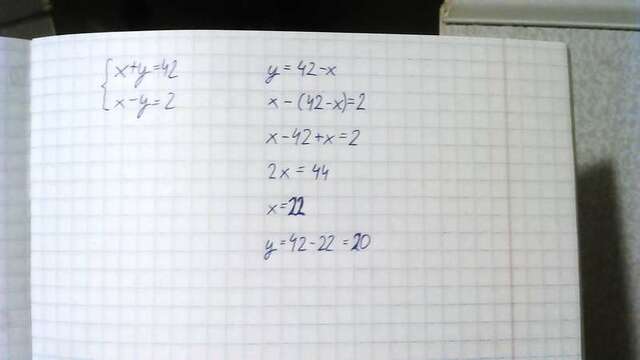 x+y=42
x-y=2
y=42-x
x-(42-x)=2
x-42+x=2
2x=44
x=22
y=42-22=20